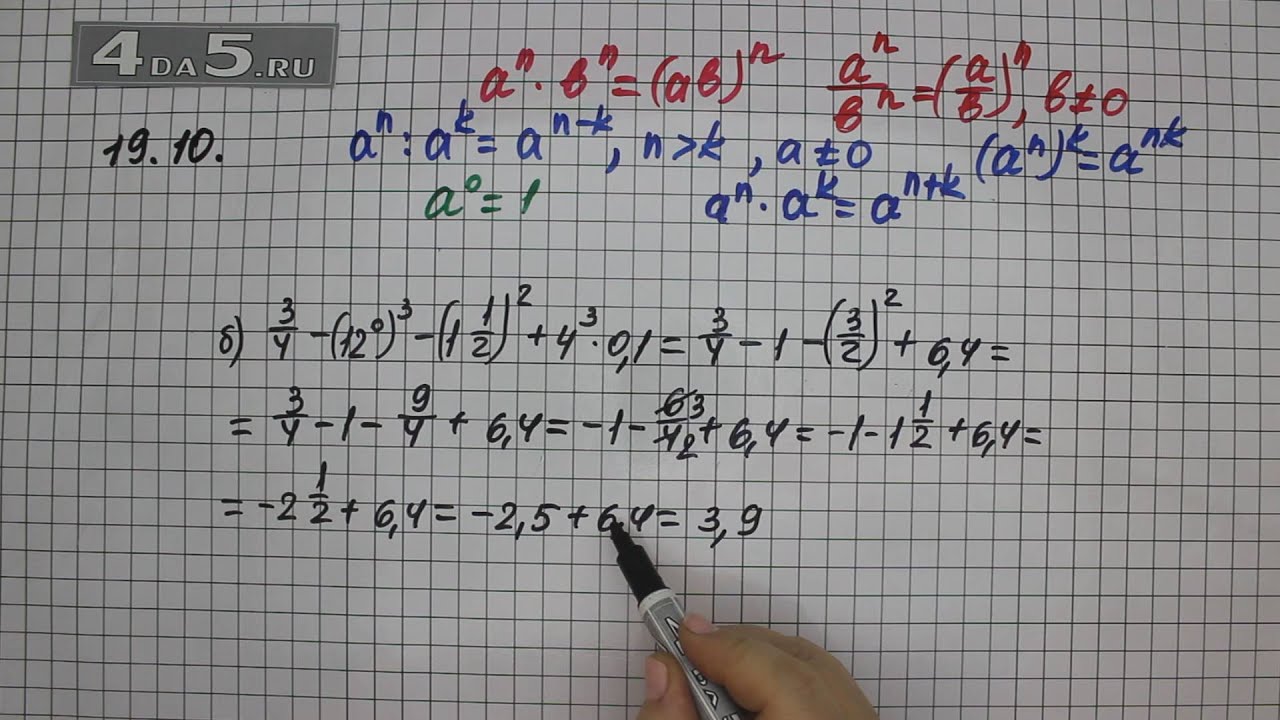 4DA5.RU
aⁿ · вⁿ = (aв)ⁿ   aⁿ/вⁿ = (a/в)ⁿ, в ≠ 0
19.10.   aⁿ : aᵏ = aⁿ⁻ᵏ, n > k, a ≠ 0   (aⁿ)ᵏ = aⁿᵏ
a⁰ = 1   aⁿ · aᵏ = aⁿ⁺ᵏ
б) 3/4 - (12⁰)³ - (1 1/2)² + 4³ · 0,1 = 3/4 - 1 - (3/2)² + 6,4 =
= 3/4 - 1 - 9/4 + 6,4 = -1 - 6̶3/4̶2 + 6,4 = -1 - 1 1/2 + 6,4 =
= -2 1/2 + 6,4 = -2,5 + 6,4 = 3,9